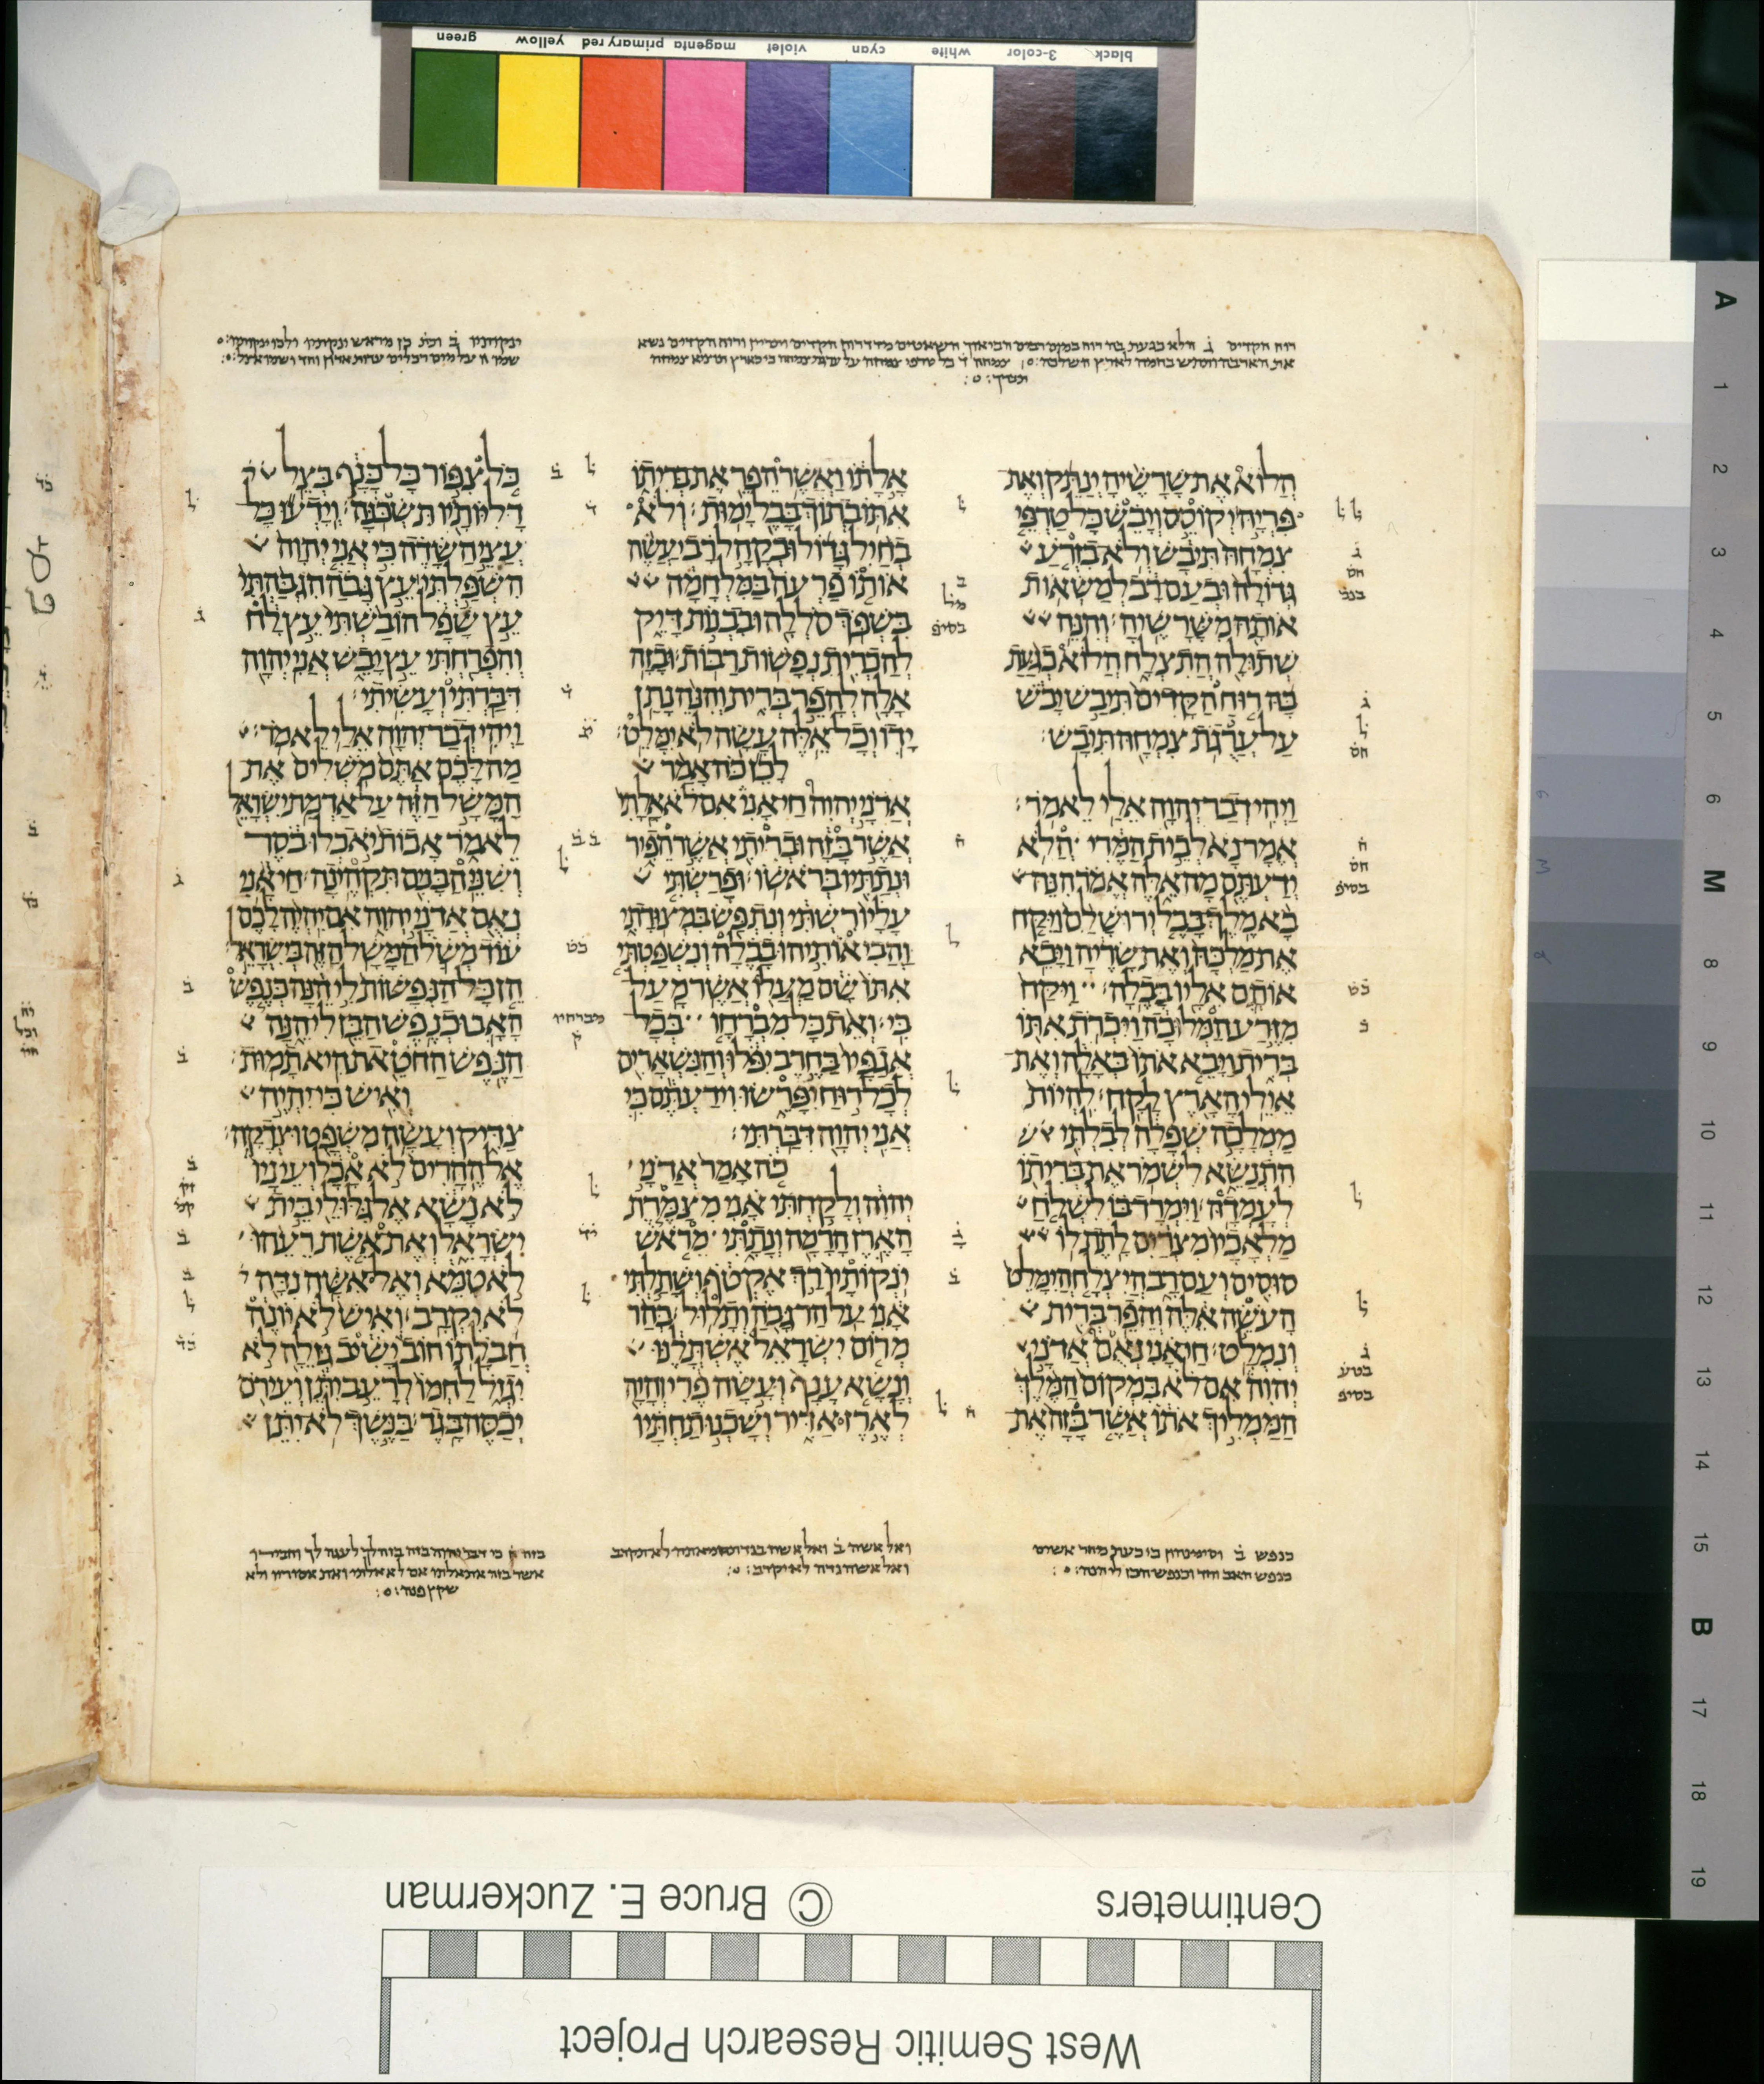 green yellow primary red magenta violet cyan white 3-color black
רוח הקדים ג הלא כגעת בה רוח
ינקותיו ב
הלוא את שרשיה ינתק ואת
פריה יקוסס ויבש כל טרפי
צמחה תיבש ולא בזרע
גדולה ובעם רב למשאות
אותה משרשיה והנה
שתולה התצלח הלוא כגעת
בה רוח הקדים תיבש יבש
על ערגת צמחה תיבש׃
ויהי דבר יהוה אלי לאמר׃
אמר נא לבית המרי הלא
ידעתם מה אלה אמר הנה
בא מלך בבל ירושלם ויקח
את מלכה ואת שריה ויבא
אותם אליו בבלה׃ ויקח
מזרע המלוכה ויכרת אתו
ברית ויבא אתו באלה ואת
אילי הארץ לקח׃ להיות
ממלכה שפלה לבלתי
התנשא לשמר את בריתו
לעמדה׃ וימרד בו לשלח
מלאכיו מצרים לתת לו
סוסים ועם רב היצלח הימלט
העשה אלה והפר ברית
ונמלט׃ חי אני נאם אדני
יהוה אם לא במקום המלך
הממליך אתו אשר בזה את
אלתו ואשר הפר את בריתו
אתו בתוך בבל ימות׃ ולא
בחיל גדול ובקהל רב יעשה
אותו פרעה במלחמה
בשפך סללה ובבנות דיק
להכרית נפשות רבות׃ ובזה
אלה להפר ברית והנה נתן
ידו וכל אלה עשה לא ימלט׃
לכן כה אמר
אדני יהוה חי אני אם לא אלתי
אשר בזה ובריתי אשר הפיר
ונתתיו בראשו׃ ופרשתי
עליו רשתי ונתפש במצודתי
והביאותיהו בבלה ונשפטתי
אתו שם מעלו אשר מעל
בי׃ ואת כל מברחו בכל
אגפיו בחרב יפלו והנשארים
לכל רוח יפרשו וידעתם כי
אני יהוה דברתי׃
כה אמר אדני
יהוה ולקחתי אני מצמרת
הארז הרמה ונתתי מראש
ינקותיו רך אקטף ושתלתי
אני על הר גבה ותלול׃ בהר
מרום ישראל אשתלנו
ונשא ענף ועשה פרי והיה
לארז אדיר ושכנו תחתיו
כל צפור כל כנף בצל
דליותיו תשכנה׃ וידעו כל
עצי השדה כי אני יהוה
השפלתי עץ גבה הגבהתי
עץ שפל הובשתי עץ לח
והפרחתי עץ יבש אני יהוה
דברתי ועשיתי׃
ויהי דבר יהוה אלי לאמר׃
מה לכם אתם משלים את
המשל הזה על אדמת ישראל
לאמר אבות יאכלו בסר
ושני הבנים תקהינה׃ חי אני
נאם אדני יהוה אם יהיה לכם
עוד משל המשל הזה בישראל׃
הן כל הנפשות לי הנה כנפש
האב וכנפש הבן לי הנה
הנפש החטאת היא תמות׃
ואיש כי יהיה
צדיק ועשה משפט וצדקה׃
אל ההרים לא אכל ועיניו
לא נשא אל גלולי בית
ישראל ואת אשת רעהו
לא טמא ואל אשה נדה
לא יקרב׃ ואיש לא יונה
חבלתו חוב ישיב גזלה לא
יגזל לחמו לרעב יתן ועירם
יכסה בגד׃ בנשך לא יתן
כנפש ב
כנפש האב וכנפש הבן לי הנה׃
ואל אשה ב
ואל אשה נדה לא יקרב׃
בזה כי דבר יהוה בזה
Centimeters © Bruce E. Zuckerman
West Semitic Research Project
A 1 2 3 4 5 6 M 8 9 10 11 12 13 14 15 B 17 18 19